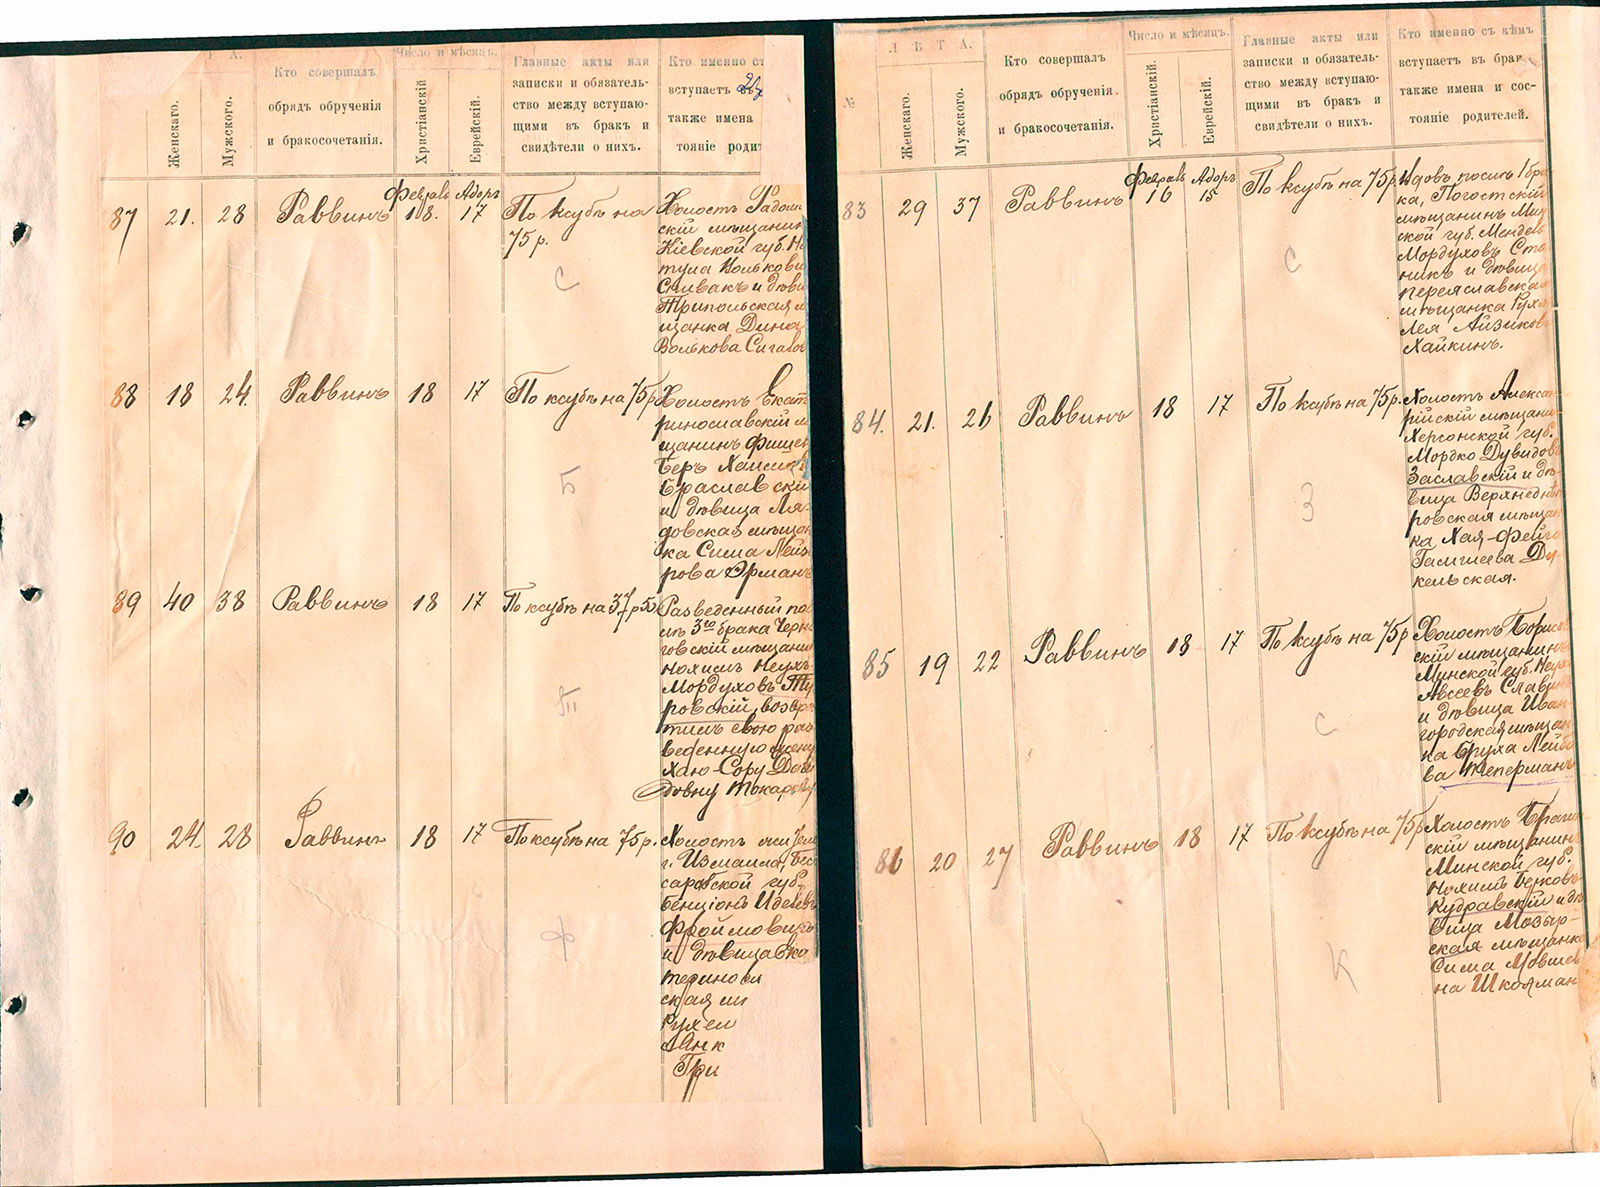 Т А.
Женскаго.
Мужского.
Кто совершалъ
обрядъ обрученія
и бракосочетанія.
Число и мѣсяцъ.
Христіанскій
Еврейскій.
Главные акты или
записки и обязатель-
ство между вступаю-
щими въ бракъ и
свидѣтели о нихъ.
Кто именно ст
вступаетъ
также имена
тояніе родит
87 21. 28 Раввинъ Февраль 18. Адоръ 17 По ксубѣ на
75 р.
С
Холостъ Радом
скій мѣщанин
Кіевской губ. Н
тула Вольковъ
Спивакъ и дѣви
Трипольская м
щанка Дина
Волькова Сигалов
88 18 24. Раввинъ 18 17 По ксубѣ на 75 р
Б
Холостъ Екат
ринославскій м
щанинъ Фишел
Беръ Хаимов
Браславскій
и дѣвица Ля-
довская мѣщан
ка Сима Лейз
рова Эрманъ
89 40 38 Раввинъ 18 17 По ксубѣ на 37 р 50
Т
Разведенный по
лѣ 3го брака Черн
говскій мѣщани
Нохимъ Неухъ
Мордуховъ Ту
ровскій, возвр
тилъ свою раз
веденную жену
Хаю-Сору Дави
довну Токар
90 24. 28 Раввинъ 18 17 По ксубѣ на 75 р.
Ф
Холостъ
г. Измаила, Бес
сарабской губ.
Бенціонъ Иделевъ
Фроймовичъ
и дѣвица Ека
терин
ская м
Рухел
Янк
Гри
№
Л Ѣ Т А.
Женскаго.
Мужского.
Кто совершалъ
обрядъ обрученія
и бракосочетанія.
Число и мѣсяцъ.
Христіанскій.
Еврейскій.
Главные акты или
записки и обязатель-
ство между вступаю-
щими въ бракъ и
свидѣтели о нихъ.
Кто именно съ кѣмъ
вступаетъ въ брак
также имена и сос-
тояніе родителей.
83 29 37 Раввинъ Февраль 16 Адоръ 15 По ксубѣ на 75 р.
С
Вдовъ послѣ 1 бра
ка, Погостскій
мѣщанинъ Мин
ской губ. Мендель
Мордуховъ Сто
никъ и дѣвица
Переяславская
мѣщанка Рухл
Лея Айзикова
Хайкинъ.
84. 21. 26 Раввинъ 18 17 По ксубѣ на 75 р.
З
Холостъ Алексан
рійскій мѣщани
Херсонской губ.
Мордко Дувидовъ
Заславскій и дѣ-
вица Верхнеднѣ
ровская мѣщан
ка Хая-Фейга
Гамшеева Ду-
кельская.
85 19 22 Раввинъ 18 17 По ксубѣ на 75 р
С
Холостъ Борисов
скій мѣщанинъ
Минской губ.
Авсеевъ Славин
и дѣвица Иван
городская мѣщан
ка Бруха Лейбо
ва Теперманъ
86 20 27 Раввинъ 18 17 По ксубѣ на 75 р
К
Холостъ Браги
скій мѣщанин
Минской губ.
Нохимъ Берковъ
Кудравскій и дѣ
вица Мозыр-
ская мѣщанка
Сима Мовшев
на Школман